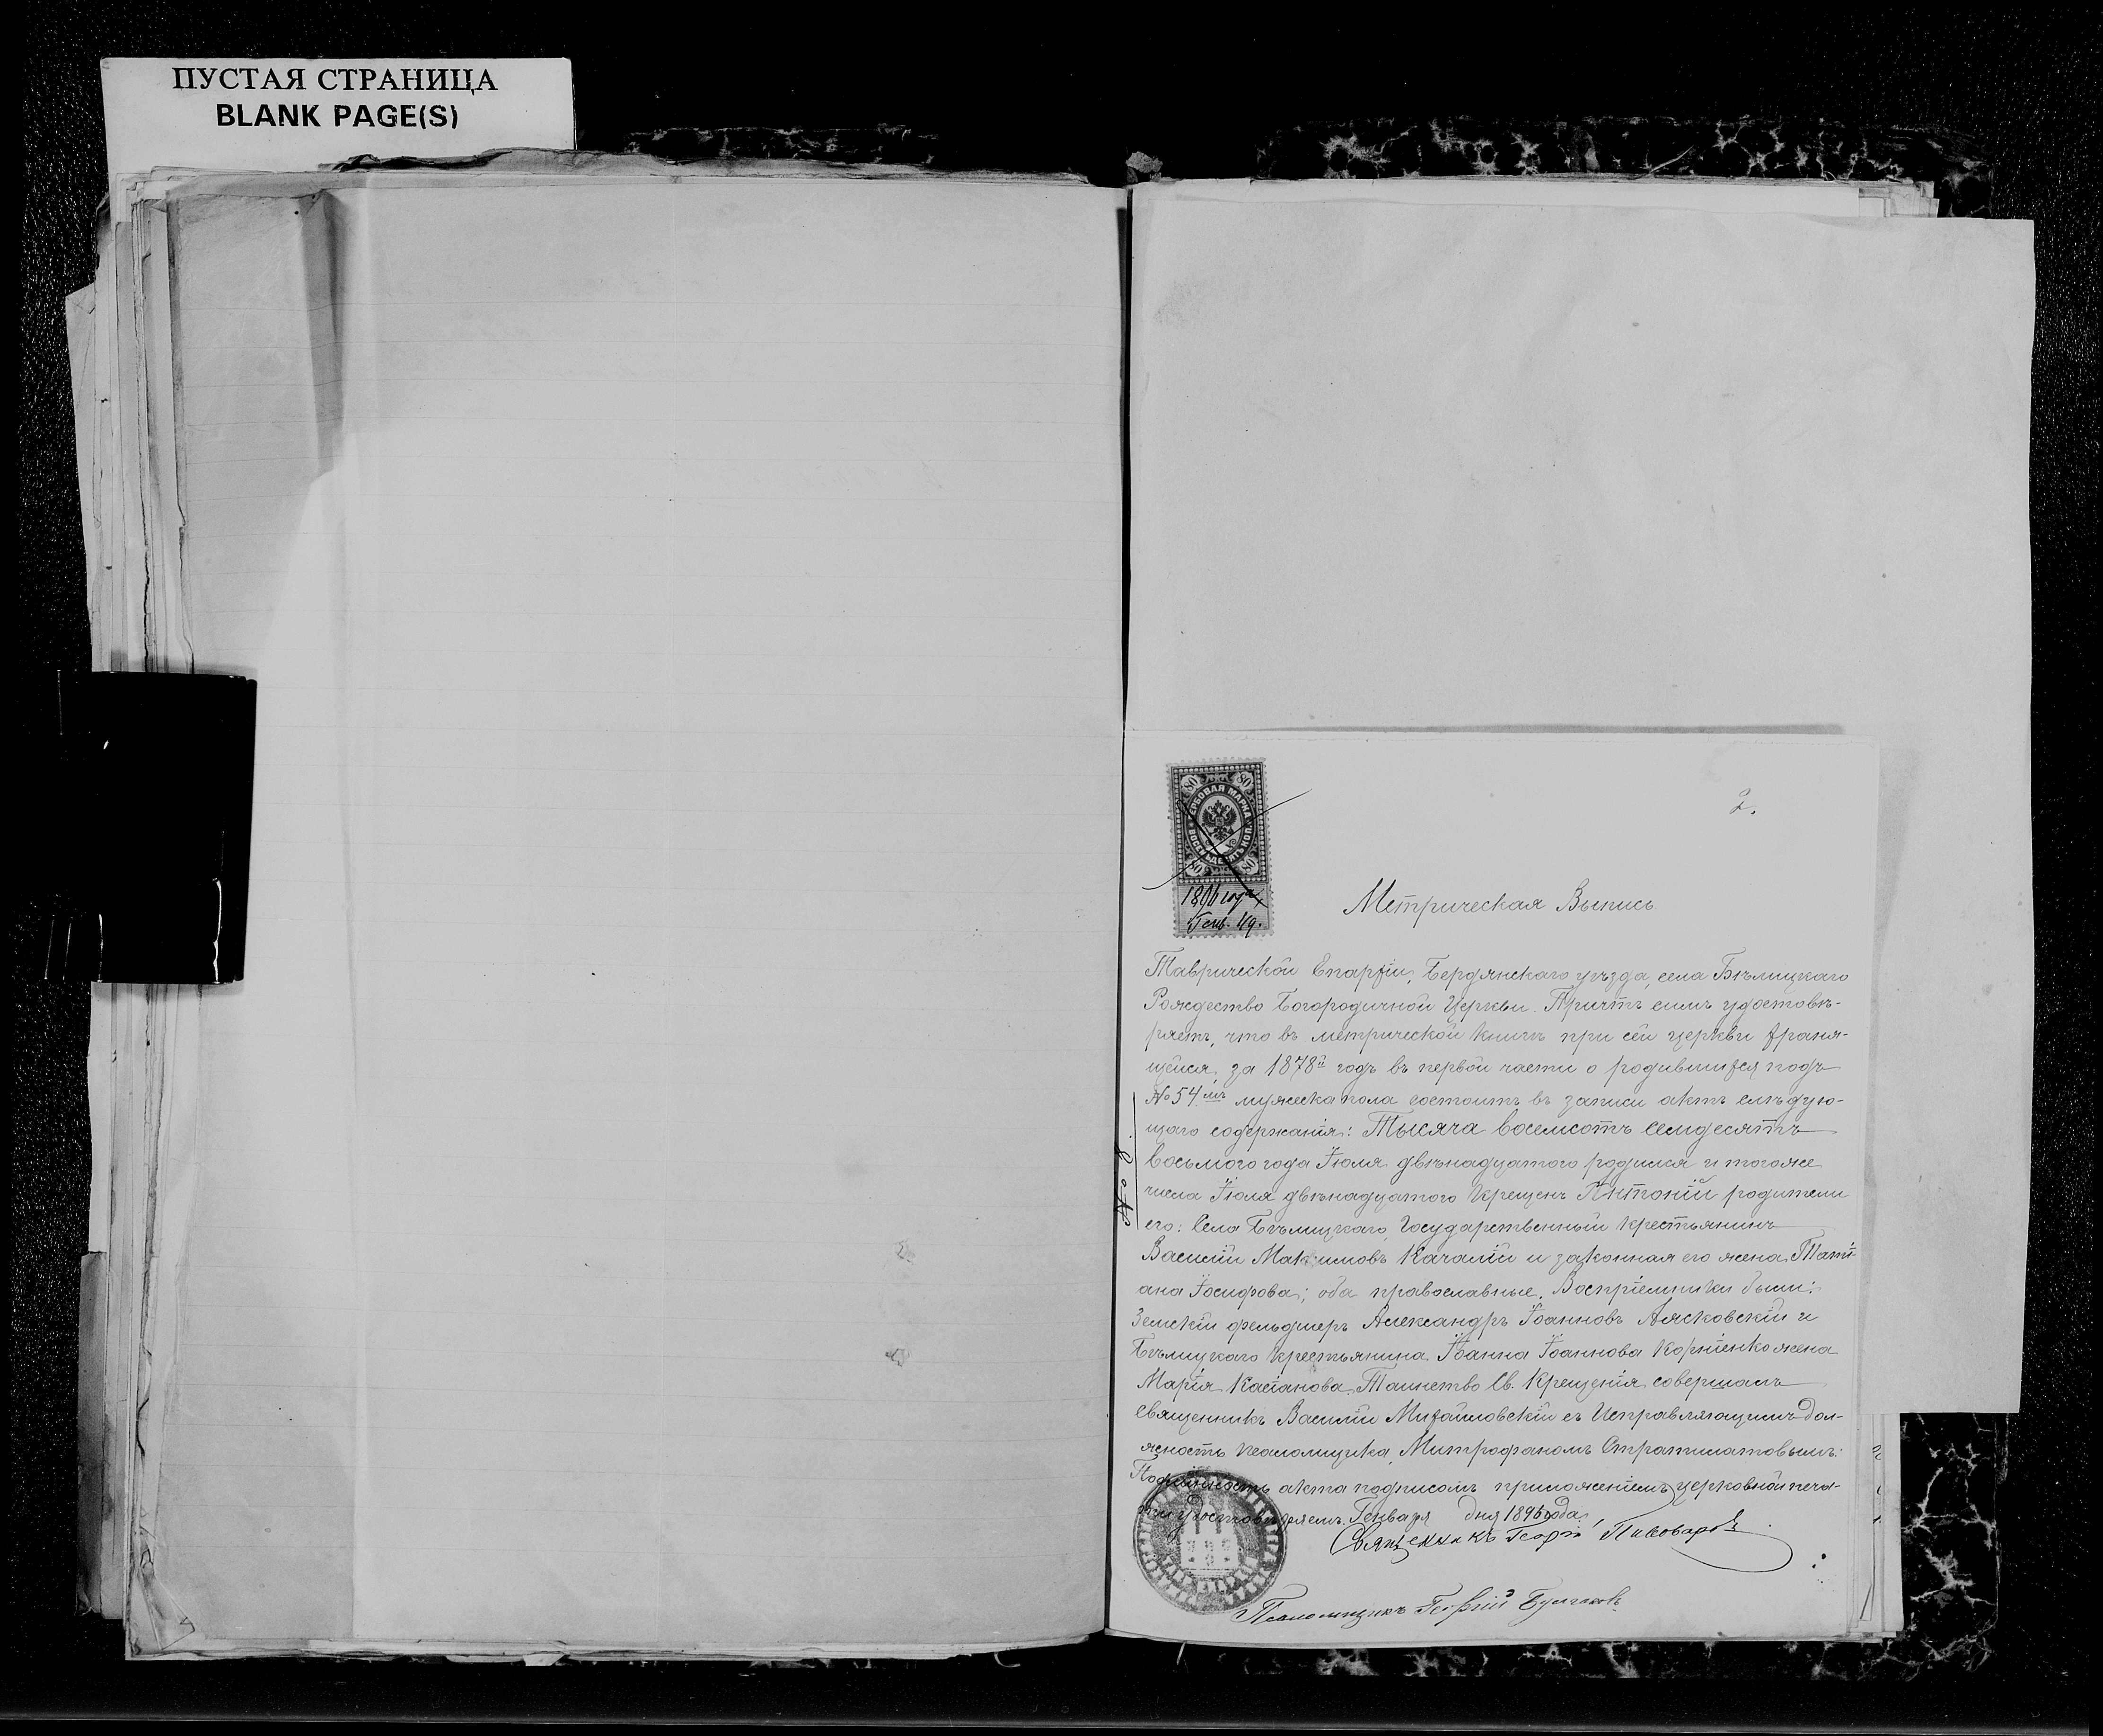 ПУСТАЯ СТРАНИЦА
BLANK PAGE(S)
2.
80 80
ГЕРБОВАЯ МАРКА
80 80
1896 года
Генв. 19.
Метрическая Выпись
Таврической Епархіи, Бердянскаго уѣзда, села Бѣлицкаго
Рождество Богородичной Церкви. Причтъ симъ удостовѣ-
ряетъ, что въ метрической книгѣ при сей церкви храня-
щейся, за 1878й годъ въ первой части о родившихся подъ
№ 54мъ мужеска пола состоитъ въ записи актъ слѣдую-
щаго содержанія: Тысяча восемсотъ семдесятъ
восьмого года Іюля двѣнадцатого родился и тогоже
числа Іюля двѣнадцатого крещенъ Антоній родители
его: Села Бѣлицкаго, Государственный крестьянинъ
Василій Максимовъ Качалій и законная его жена Таті-
ана Іосифова; оба православные. Воспріемники были:
Земскій фельдшеръ Александръ Іоанновъ Лясковскій и
Бѣлицкаго крестьянина Іоанна Іоаннова Корніенко жена
Марія Касіанова. Таинство Св. Крещенія совершалъ
Священникъ Василій Михайловскій съ Исправляющимъ дол-
жность псаломщика, Митрофаномъ Стратилатовымъ.
Подлинность акта подписомъ приложеніемъ церковной печа-
ти удостовѣряемъ. Генваря дня 1896 года.
Священникъ Георгій Пивоваровъ
Псаломщикъ Георгій
№ 8.